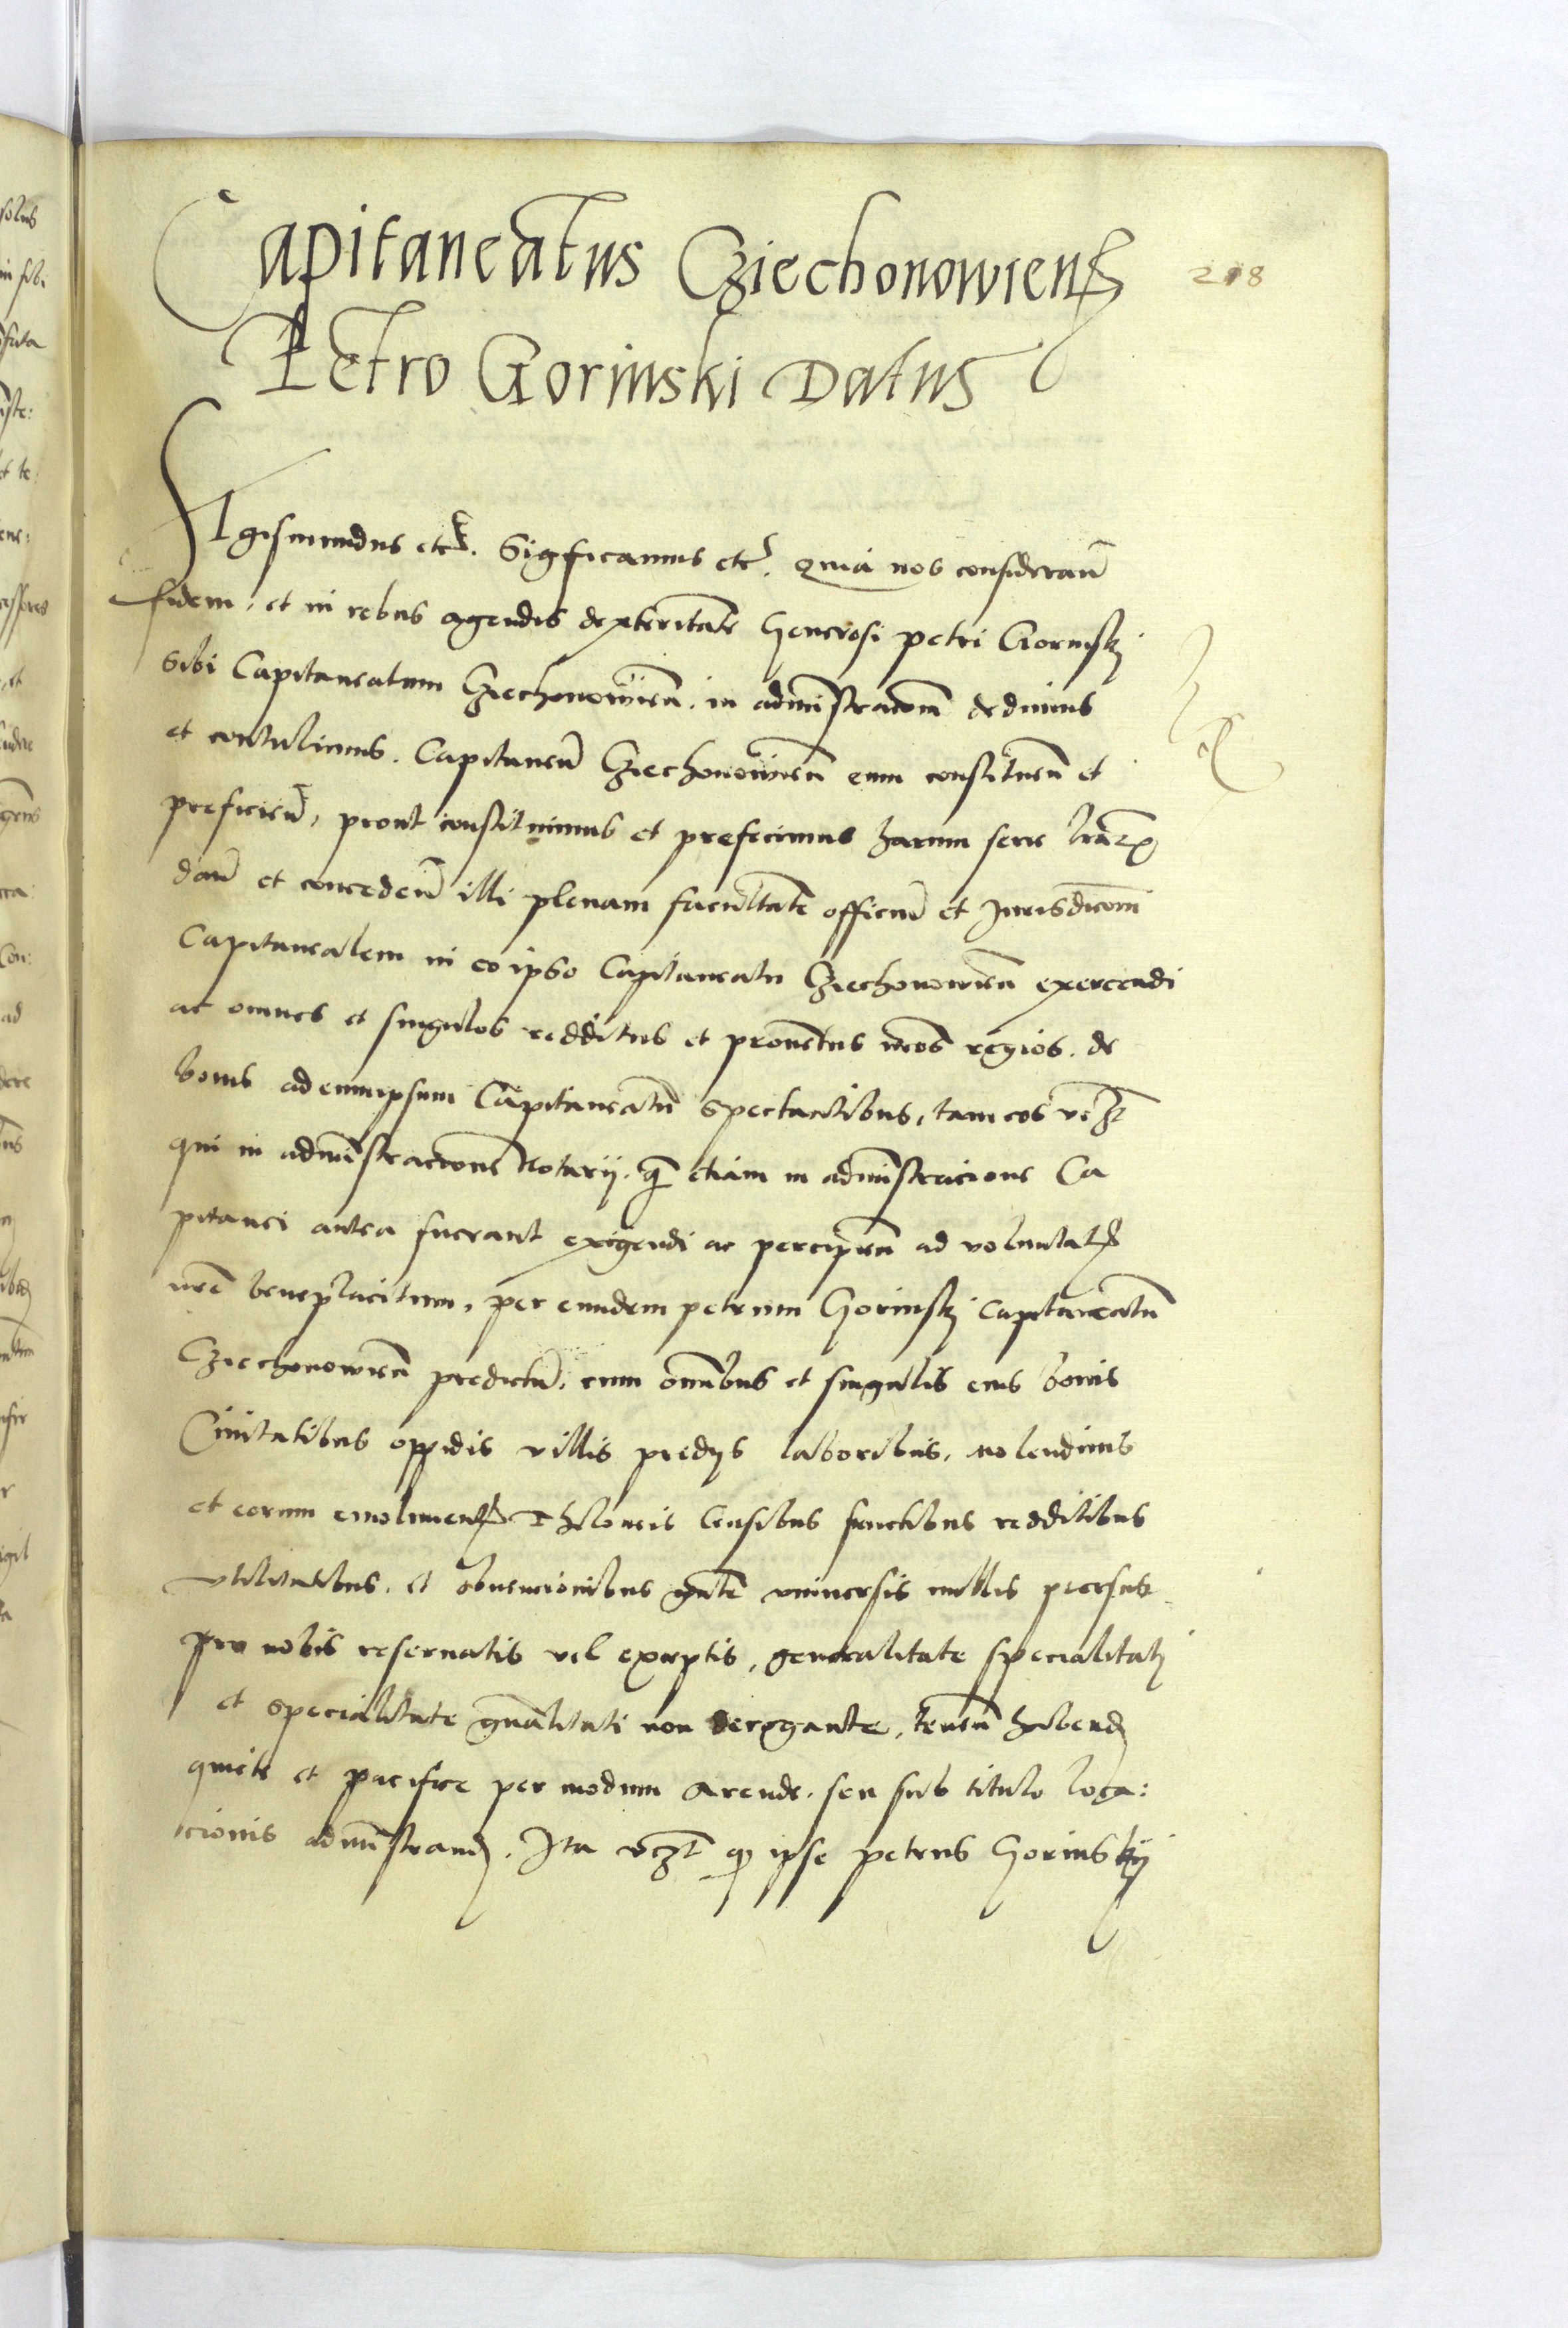 Capitaneatus Cziechonowien̄
Petro Gorinski Datus
218
Sigismundus etc. Sigficamus etc. Quia nos consideran̄
fidem, et in rebus agendis dexteritatē Generosi petri Gorinskj
sibi Capitaneatum Cziechonowien̄. in administracōm̄ dedimus
et contulimus. Capitaneū Cziechonowien̄ eum constituen̄ et
preficien̄, prout constituimus et prefecimus harum serie lrārꝝ
dan̄ et conceden̄ illi plenam facultatē officiū et Jurisdicōm̄
Capitanealem in eo ipso Capitaneatu Cziechonowien̄ exercendi
ac omnes et singulos redditus et proventus nrōs regios. de
bonis ad eumipsum Capitaneatū spectantibus, tam eos vcꝫt
qui in administracione Notarij. qm̄ etiam in administracione Ca
pitanei antea fuerant exigendi ac percipien̄ ad voluntatꝭ
nrē beneplacitum, per eundem petrum Gorinskj Capitaneatū
Cziechonowien̄ predictū, cum omnibus et singulis eius bonis
Civitatibus oppidis villis predijs laboribus, molendinis
et eorum emolumentꝭ Theloneis Censibus fructibus redditibus
vtilitatibus. et obvencionibus gnr̄te vniversis nullis prorsus
pro nobis reservatis vel exceptis, generalitate specialitatj
et specialitate gnālitati non derogante, tenen̄ habend
quiete et pacifice per modum Arende. seu sub titulo loca:
cionis administrand. Ita vcꝫt qꝫ ipse petrus Gorinskij